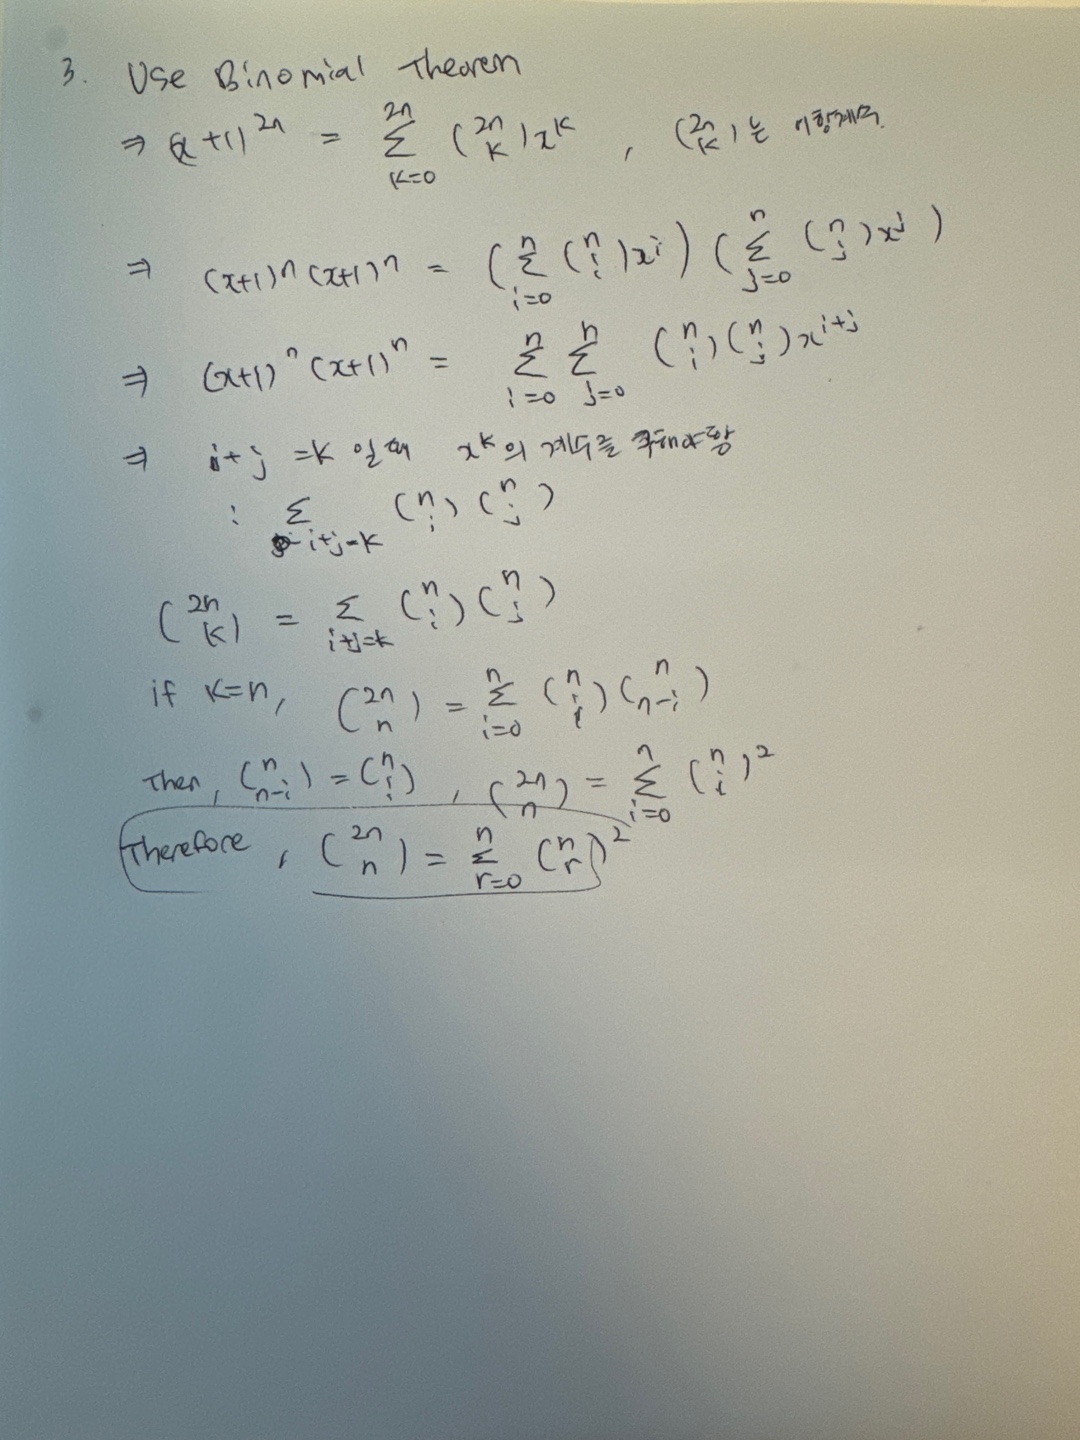 3. Use Binomial Theorem
⇒ (x+1)^{2n} = \sum_{k=0}^{2n} \binom{2n}{k} x^k , \binom{2n}{k}는 이항계수.
⇒ (x+1)^n (x+1)^n = (\sum_{i=0}^{n} \binom{n}{i} x^i) (\sum_{j=0}^{n} \binom{n}{j} x^j)
⇒ (x+1)^n (x+1)^n = \sum_{i=0}^{n} \sum_{j=0}^{n} \binom{n}{i} \binom{n}{j} x^{i+j}
⇒ i+j =k 일때 x^k의 계수를 구해야함
: \sum_{i+j=k} \binom{n}{i} \binom{n}{j}
\binom{2n}{k} = \sum_{i+j=k} \binom{n}{i} \binom{n}{j}
if k=n, \binom{2n}{n} = \sum_{i=0}^{n} \binom{n}{i} \binom{n}{n-i}
Then, \binom{n}{n-i} = \binom{n}{i}, \binom{2n}{n} = \sum_{i=0}^{n} \binom{n}{i}^2
Therefore, \binom{2n}{n} = \sum_{r=0}^{n} \binom{n}{r}^2